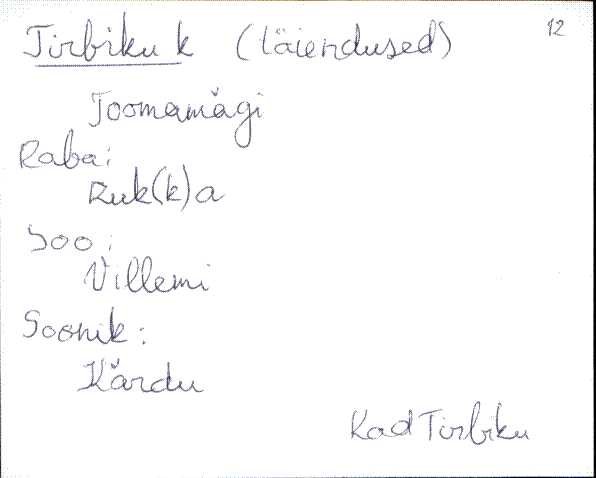 Tirbiku k (täiendused) 12
Toomamägi
Raba:
Ruk(k)a
Soo:
Villemi
Soonik:
Kärdu
Kad Tirbiku